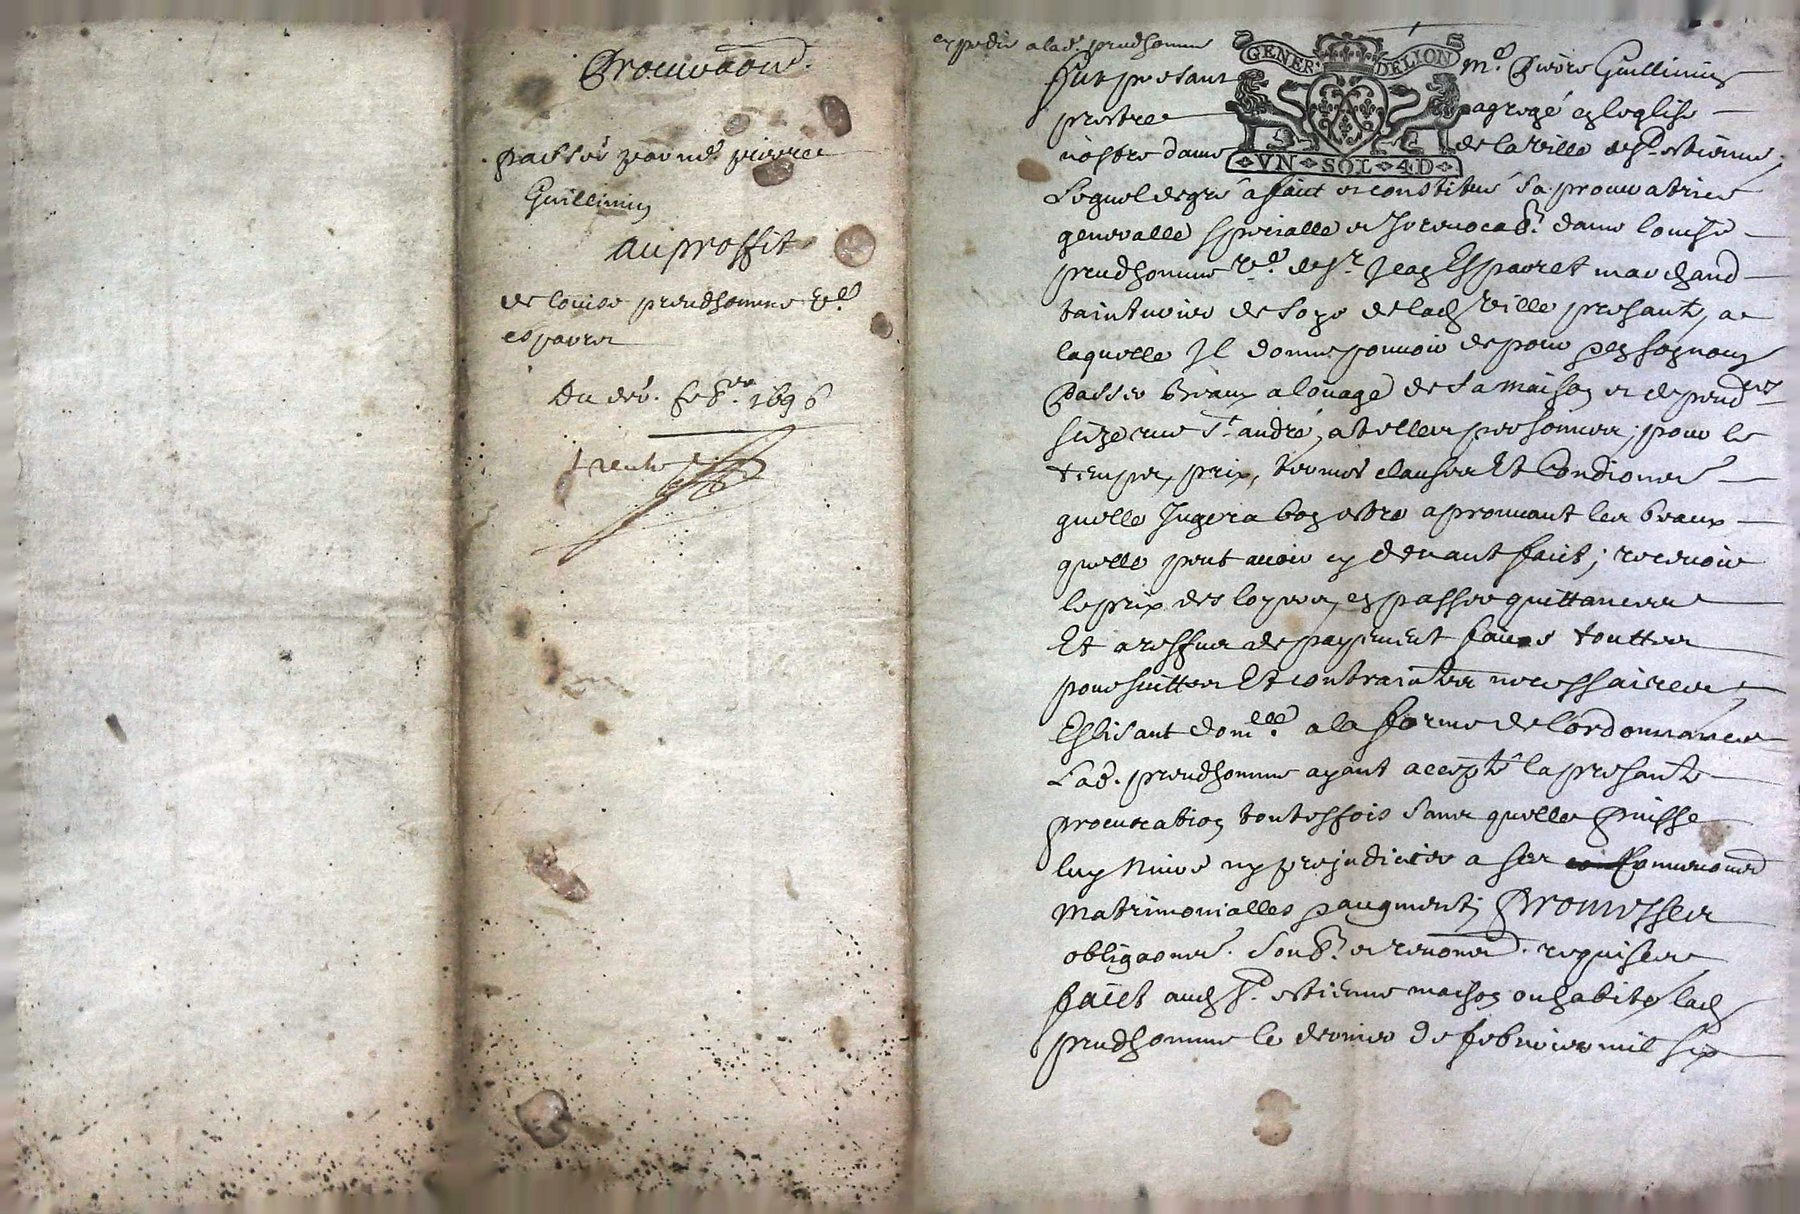 Procuraon.
passée par me. pierre
Guillimin
au proffit
de louise preudhomme ve.
esparet
Du der. feb.er 1696
expedié a lad. prudhomme
GENER. DE LION
VN SOL 4 D
Fut presant Me. Pierre Guillimin
prestre agregé en leglise
nostre dame de la ville de St. estienne,
Lequel de gré a fait et constitué sa procuatrice
generalle specialle et Irevocab. dame louise
prudhomme ve. de sr. Jean Esparet marchand
tainturier de soye de lad. ville presante, a
laquelle Il donne pouvoir de pour
Passer beaux a louage de sa maison et dependces
size rue St. andré, a telles personnes, pour le
temps, prix, termes clauses Et Condiones
quelle Jugera bon estre aprouvant les beaux
quelle peut avoir cy devant fait; recevoir
le prix des loyers, en passer quittances
Et a reffus de payement faire touttes
poursuittes Et contraintes necessaires
Eslisant domlle. a la forme de l'ordonnance
Lad. preudhomme ayant accepté la presante
procuration touteffois sans quelle Puisse
luy Nuire ny prejudicier a ses
matrimonialles Promesses
obligaones. soub. et renones. requises
faict aud. St. estienne maison ou habite lad.
prudhomme le dernier de febvrier mil six